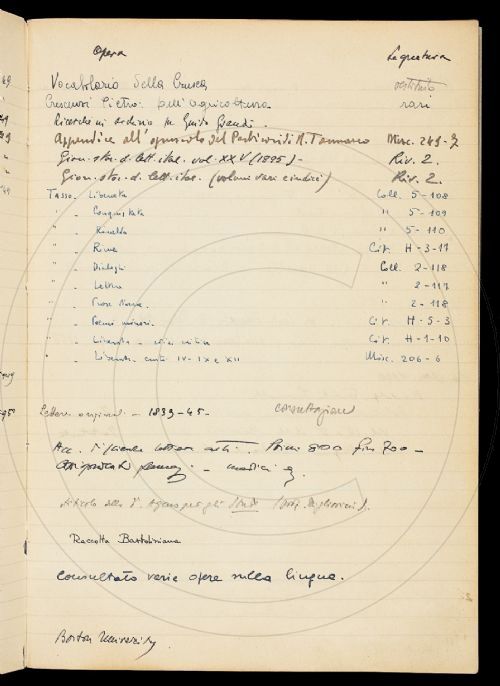 Opera Segnatura
Vocabolario della Crusca restituito
Crescenzi Pietro: dell'agricoltura rari
Ricerche in sediria su Guido Grandi.
Appendice all'opuscolo del Perticari di N. Tommaseo Misc. 249-7
Giorn. stor. d. lett. ital. vol. XXV (1895) - Riv. 2.
Giorn. stor. d. lett. ital. (volumi vari e indici) Riv. 2.
Tasso. Liberata Coll. 5-108
" - Conquistata " 5-109
" - Rinaldo " 5-110
" - Rime Cit. H-3-11
" - Dialoghi Coll. 2-118
" - Lettere " 2-117
" - Prose diverse. " 2-118
" - Poemi minori. Cit. H-5-3
" - Liberata - ediz. critica Cit. H-1-10
" - Liberata. canti IV-IX e XII Misc. 206-6
Lettere originali - 1839-45- consultazione
Acc. Primi 800 fine 700 -
Articolo della D.
Raccolta Bartoliniana
Consultato varie opere sulla lingua.
Boston University